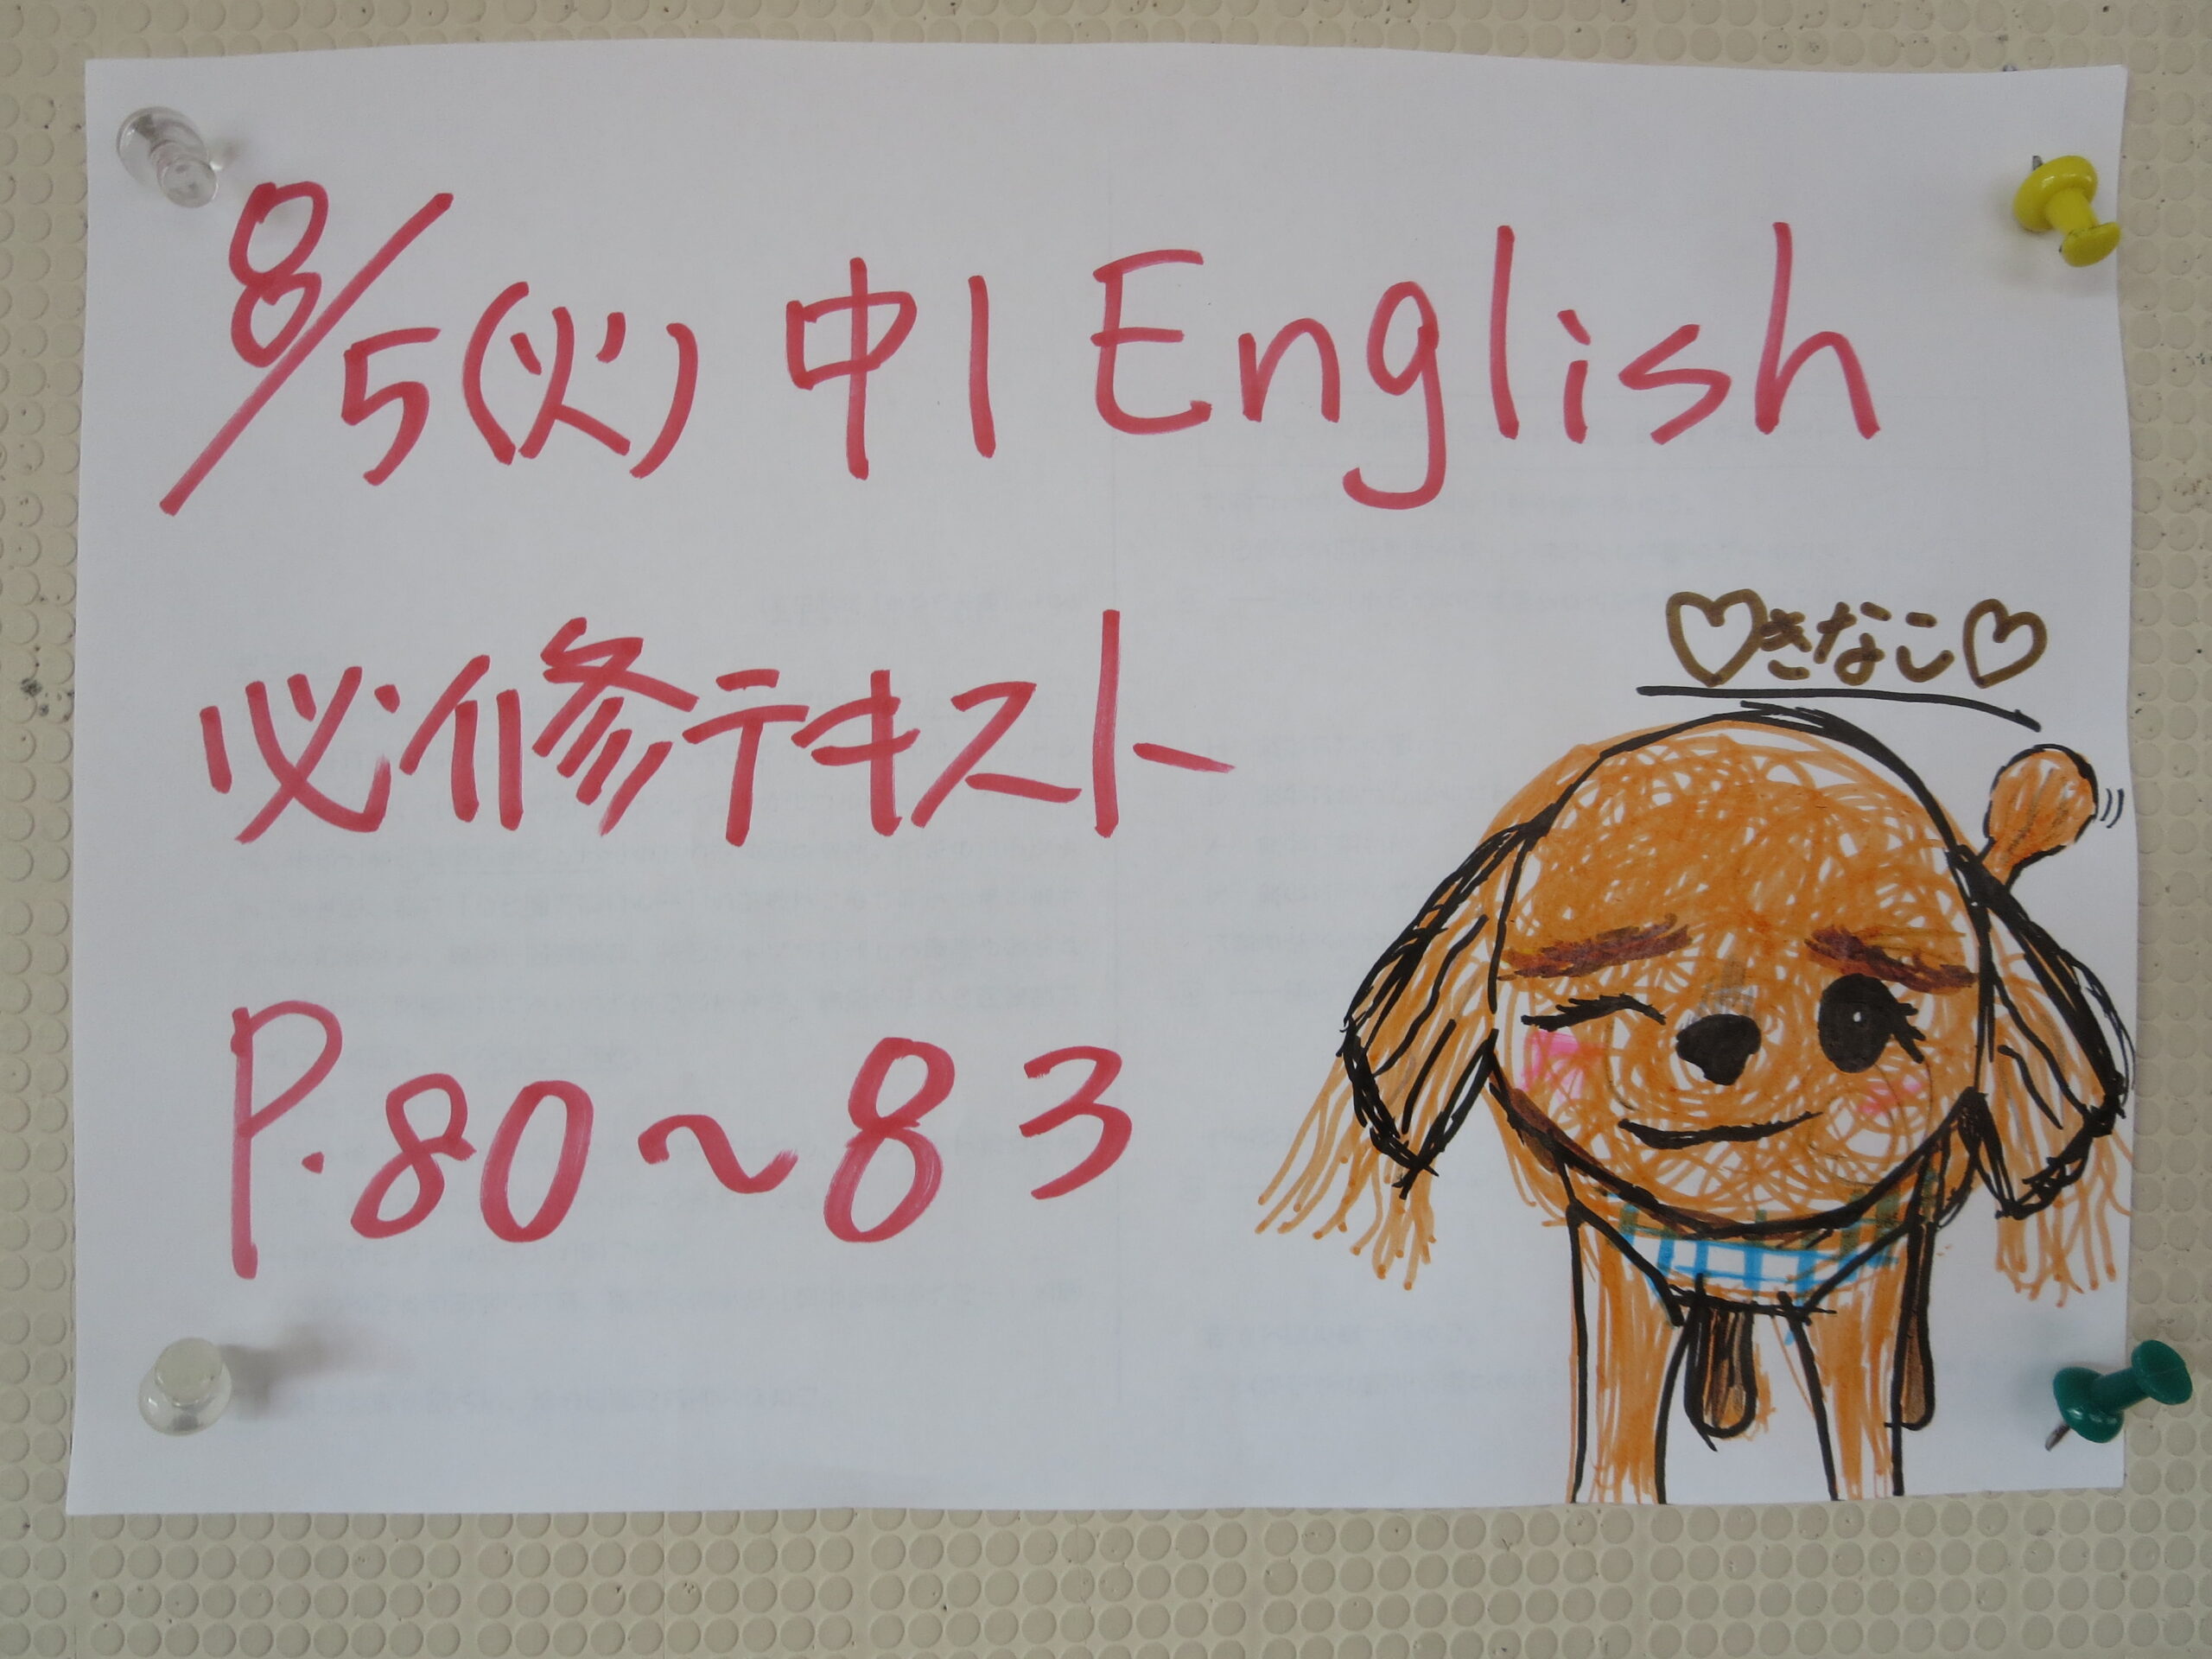 8/5(火) 中1 English
必修テキスト
P.80～83
♡きなこ♡